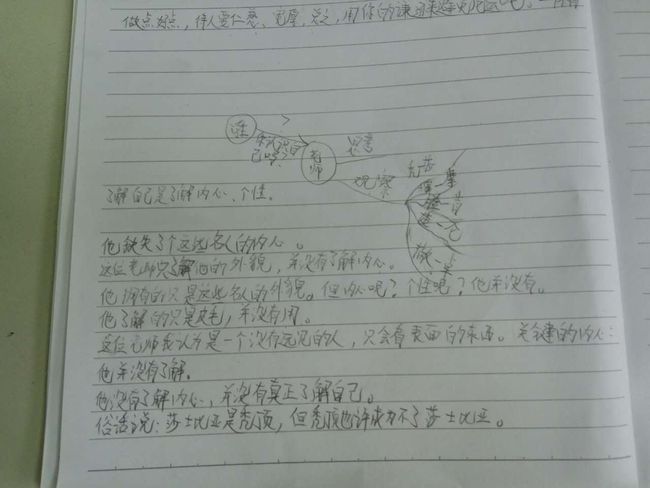 做点好点，待人要仁慈、宽厚，总之，用你的
谁
认识自己吗？
老师
观察
了解自己是了解内心、个性。
他缺失了个这些名人的内心。
这位老师只了解他的外貌，并没有了解内心。
他拥有的只是这些名人的外貌。但内心呢？个性呢？他并没有。
他了解的只是皮毛，并没有用。
这位老师我认为是一个没有远见的人，只会看表面的东西。关键的内心：
他并没有了解。
他没有了解内心，并没有真正了解自己。
俗话说：莎士比亚是秃顶，但秃顶也许成为不了莎士比亚。